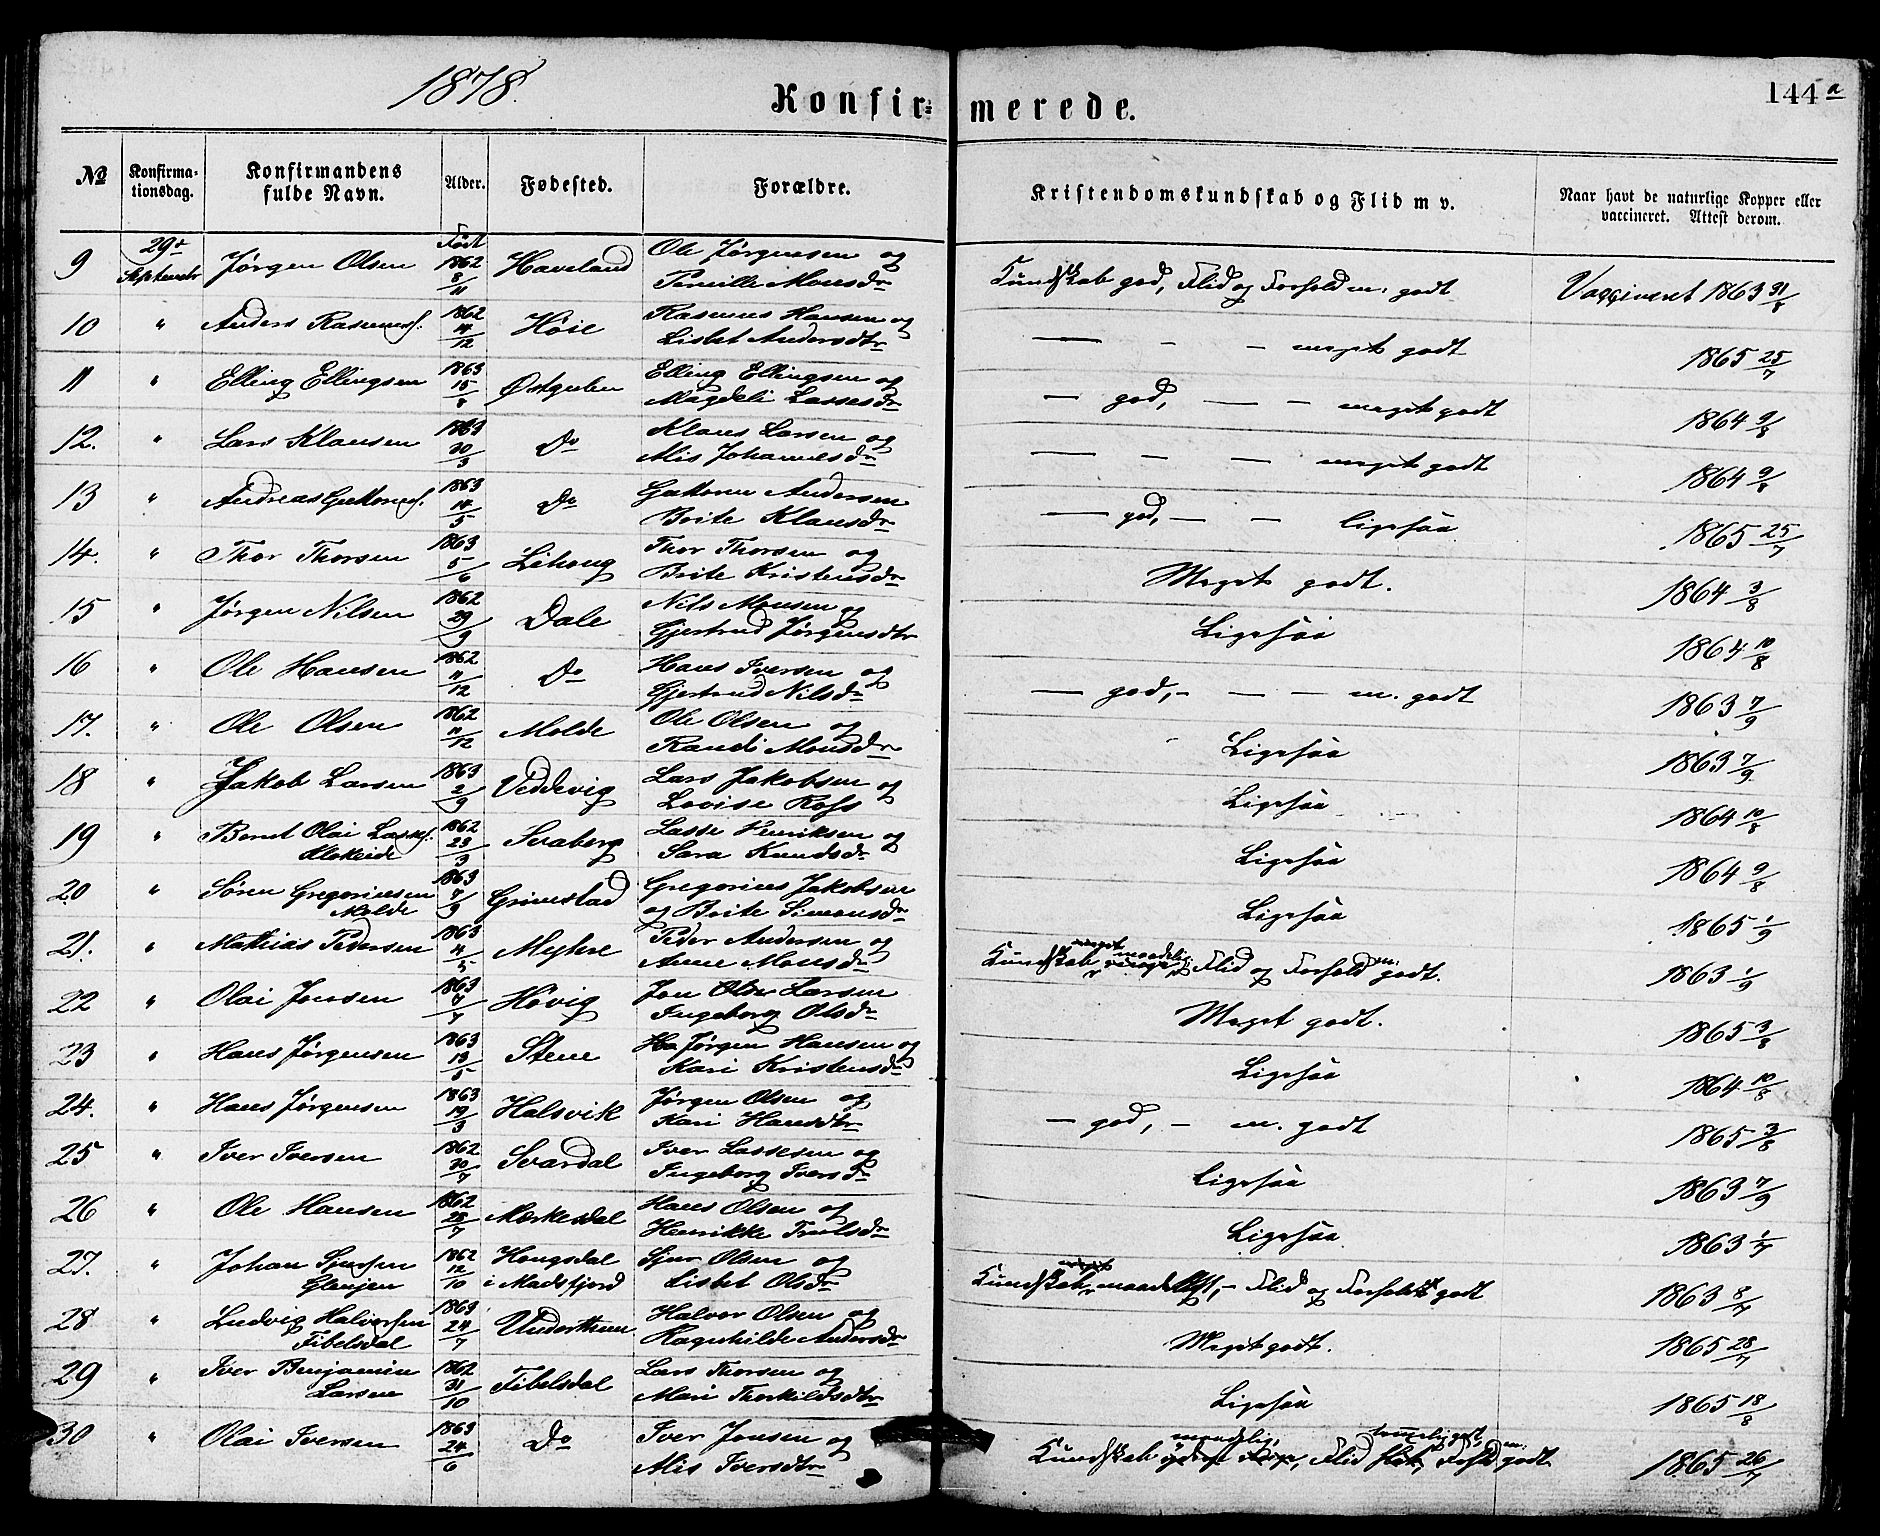 1878.
Konfirmerede.
144 a
№ Konfirmationsdag. Konfirmandens fulde Navn. Alder. Fødested. Forældre. Kristendomskundskab og Flid m v. Naar havt de naturlige Kopper eller vaccineret. Attest derom.
Født
9 29de Septembr Jørgen Olsen 1862 8/11 Haveland Ole Jørgensen og Pernille Monsdr Kundskab god, Flid og Forhold m. godt Vaccineret 1863 31/8
10 " Anders Rasmuss. 1862 14/12 Høie Rasmus Hansen og Lisbet Andersdtr — - - meget godt 1865 25/7
11 " Elling Ellingsen 1863 15/8 Østgulen Elling Ellingsen og Magdeli Lassesdr — god, — - meget godt 1864 9/8
12. " Lars Klausen 1863 30/3 Do Klaus Larsen og Alis Johannesdr — - - meget godt 1864 9/8
13 " Andreas Guttorms. 1863 14/5 Do Guttorm Andersen Brite Klausdr — god, - - ligesaa 1865 25/7
14. " Thor Thorsen 1863 5/6 Lihoug Thor Thorsen og Brite Kristensdr Meget godt. 1864 3/8
15 " Jørgen Nilsen 1862 29/9 Dale Nils Monsen og Gjertrud Jørgensdtr Ligesaa 1864 10/8
16 " Ole Hansen 1862 11/12 Do Hans Iversen og Gjertrud Nilsdr — god, - - - m. godt 1863 7/9
17. " Ole Olsen 1862 11/12 Molde Ole Olsen og Randi Monsdr Ligesaa 1863 7/9
18 " Jakob Larsen 1863 2/9 Veddevig Lars Jakobsen og Lovise Ross Ligesaa 1864 10/8
19 " Bernt Olai Lasses. Klokeide 1862 23/3 Svaberg Lasse Henriksen og Sara Knudsdr Ligesaa 1864 9/8
20 " Søren Gregoriussen Molde 1863 7/9 Grimestad Gregorius Jakobsen og Brite Simonsdr Ligesaa 1865 1/9
21. " Mathias Pedersen 1863 4/5 Myhre Peder Andersen og Anne Monsdr Kundskab maadelig, Flid og Forhold m. godt. 1863 1/9
22 " Olai Jonsen 1863 7/7 Høvig Jon Larsen Ingeborg Olsdr Meget godt. 1865 3/8
23 " Hans Jørgensen 1863 13/5 Stene Jørgen Hansen og Kari Kristensdr Ligesaa 1864 10/8
24. " Hans Jørgensen 1863 19/3 Halsvik Jørgen Olsen og Kari Hansdtr — god, - m. godt 1865 3/8
25 " Iver Iversen 1862 30/7 Svardal Iver Lassesen og Ingeborg Iversdr Ligesaa 1863 7/9
26 " Ole Hansen 1862 28/7 Mørkesdal Hans Olsen og Henrikke Trulsdr Ligesaa 1863 1/7
27. " Johan Sjursen Glenjen 1862 12/10 Hougsdal i Madsfjord Sjur Olsen og Lisbet Olsdr Kundskab maadelig, - Flid og Forhold godt 1863 8/7
28 " Ludvig Halvorsen Fibelsdal 1863 24/7 Underthun Halvor Olsen og Ragnhilde Andersdr Meget godt. 1865 28/7
29 " Iver Benjamin Larsen 1862 31/10 Fibelsdal Lars Thorsen og Mari Thorkildsdtr Ligesaa 1865 18/8
30 " Olai Iversen 1863 24/6 Do Iver Jonsen og Alis Iversdtr Kundskab maadelig, Flid temmelig god, Forhold m. godt. 1865 26/7